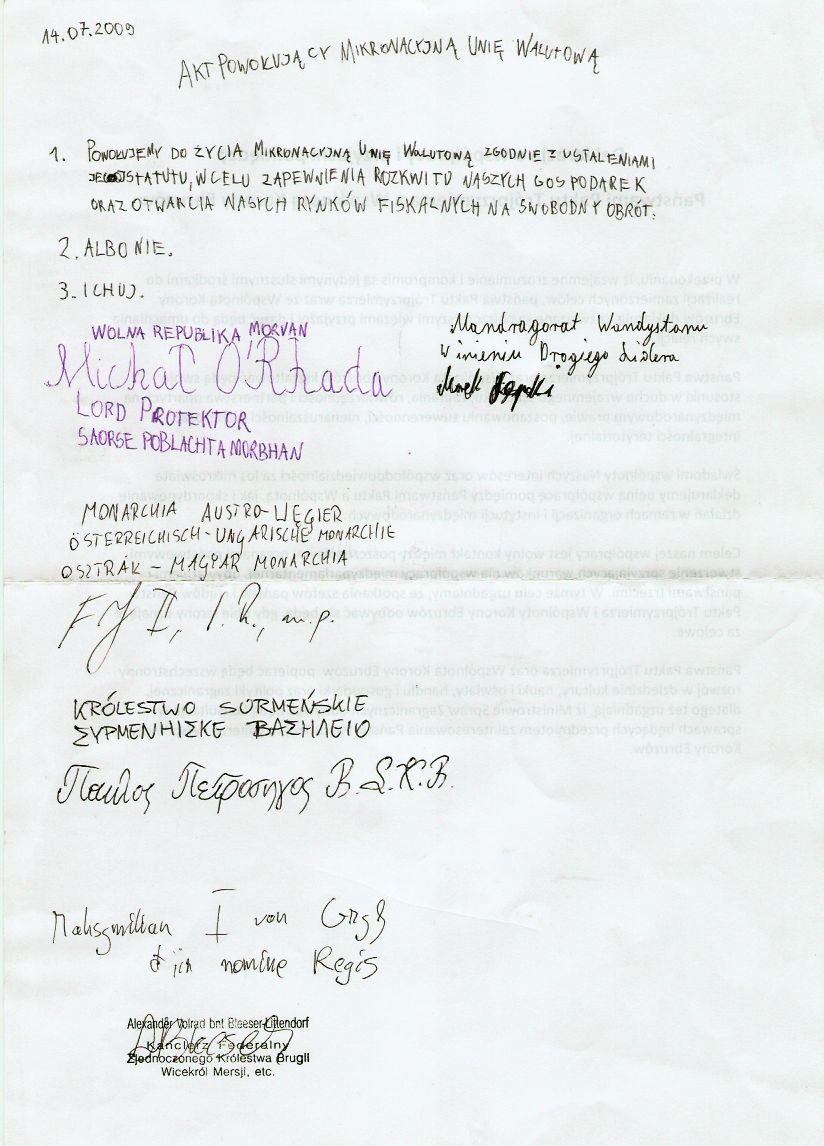 14.07.2009
AKT POWOŁUJĄCY MIKRONACYJNĄ UNIĘ WALUTOWĄ
1. POWOŁUJEMY DO ŻYCIA MIKRONACYJNĄ UNIĘ WALUTOWĄ ZGODNIE Z USTALENIAMI
JEGO STATUTU, W CELU ZAPEWNIENIA ROZKWITU NASZYCH GOSPODAREK
ORAZ OTWARCIA NASYCH RYNKÓW FISKALNYCH NA SWOBODNY OBRÓT.
2. ALBO NIE.
3. I CHUJ.
WOLNA REPUBLIKA MORVAN
Michał O'Rhada
LORD PROTEKTOR
SAORSE POBLACHTA MORBHAN
Mandragorat Wandystanu
W imieniu Drogiego Lidera
MONARCHIA AUSTRO-WĘGIER
ÖSTERREICHISCH-UNGARISCHE MONARCHIE
OSZTRÁK-MAGYAR MONARCHIA
FJ I, I.R., m.p.
KRÓLESTWO SURMEŃSKIE
ΣΥΡΜΕΝΗΙΣΚΕ ΒΑΣΗΛΕΙΟ
Παυλος Πετροσηγος B.S.K.B.
I von
in nomine Regis
Alexander Volrad bnt Bleeser-Littendorf
Kanclerz Federalny
Zjednoczonego Królestwa Brugii
Wicekról Mersji, etc.